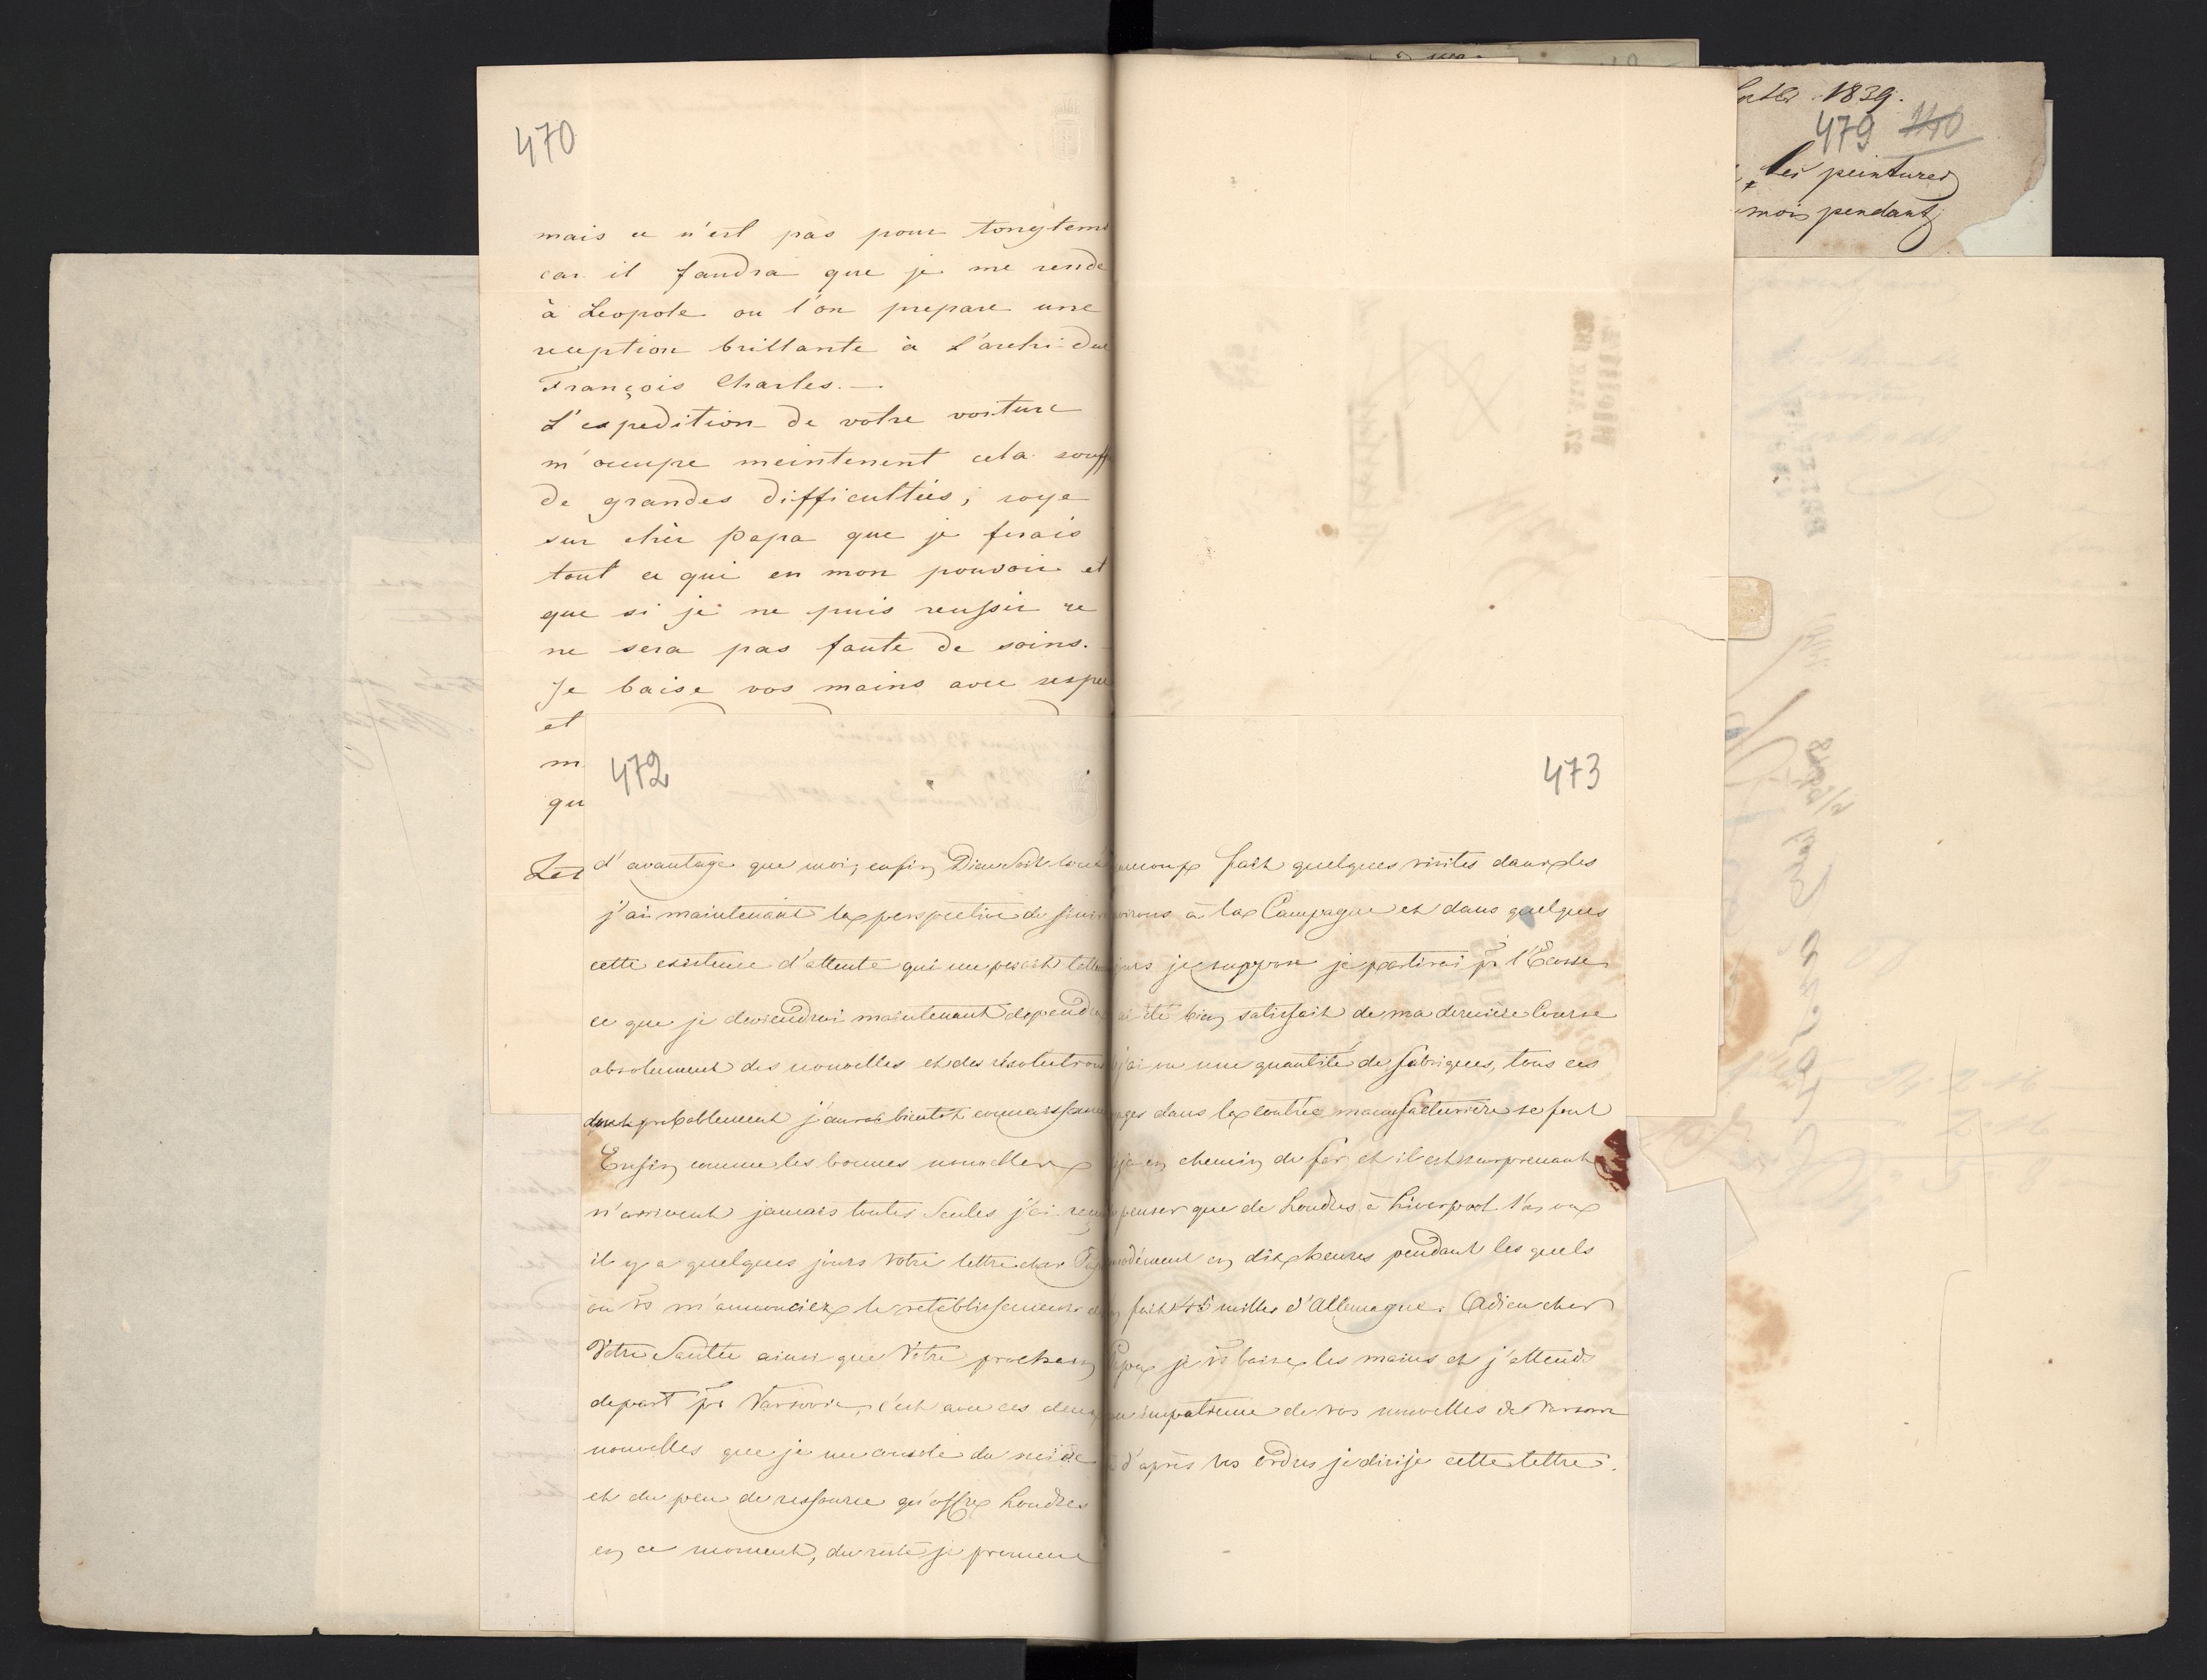 470
mais ce n'est pas pour longtems
car il faudra que je me rende
à Leopole ou l'on prepare une
reception brillante à L'archi-duc
François Charles.—
L'expedition de votre voiture
m'occupe meintenent cela souff
de grandes difficultées; soye
sur chèr Papa que je ferais
tout ce qui en mon pouvoir et
que si je ne puis reussir ce
ne sera pas faute de soins.
Je baise vos mains avec respec
et
m
qu
Les
472
d'avantage que moi, enfin Dieu soit loué
j'ai maintenant la perspective de finir
cette existence d'attente qui me pesait telle
ce que je deviendrai maintenant depend
absolument des nouvelles et des résolutions
dont probablement j'aurai bientot connaissance
Enfin comme les bonnes nouvelles
n'arrivent jamais toutes seules j'ai reçu
il y a quelques jours Votre lettre cher Papa
où vs m'annonciez le retablissement de
Votre Santée ainsi que Votre prochain
depart pr Varsovie, c'est avec ces deux
nouvelles que je me console du
et du peu de ressource qu'offre Londres
en ce moment, du reste je promene
473
aucoup fait quelques visites dans les
virons à la Campagne et dans quelques
jours je suppose je partirai pr l'Ecosse
ai été bien satisfait de ma derniere Course
j'ai vu une quantité de fabriques, tous ces
ages dans la contrée manufacturiere se font
déja en chemin de fer, et il est surprenant
penser que de Londres à Liverpool l'on va
modément en dix heures pendant les quels
on fait 45 milles d'Allemagne. Adieu cher
Papa je vs baise les mains et j'attends
avec impatience de vos nouvelles de Varsovie
où d'après vos ordres je dirije cette lettre.
1839.
479 110
les peintures
mois pendant